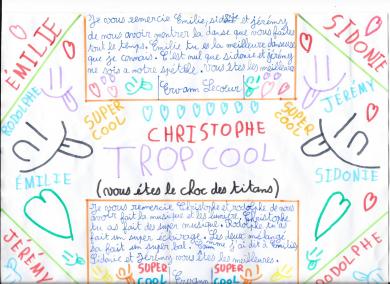 ÉMILIE
SIDONIE
Je vous remercie Emilie, sidonie et Jérémy
de nous avoir montrer la danse que vous faites
tout le temps. Emilie tu es la meilleure danseuse
que je connais. C'est nul que sidonie et Jérémy
ne sois a notre spéctacle. Vous êtes les meilleures
Erwann Lecoeur
RODOLPHE
JÉRÉMY
SUPER
COOL
SUPER
COOL
CHRISTOPHE
TROP COOL
ÉMILIE
SIDONIE
(vous êtes le choc des titans)
Je vous remercie Christophe et rodolphe de nous
avoir fait la musique et les lumière. Christophe
tu as fait des super musique. Rodolphe tu as
fait un super éclairage. Les deux mélanger
sa fait un super bal. Comme j'ai dit a Emilie,
Sidonie et Jérémy vous êtes les meilleures.
SUPER
COOL
Erwann
SUPER
COOL
JÉRÉMY
RODOLPHE